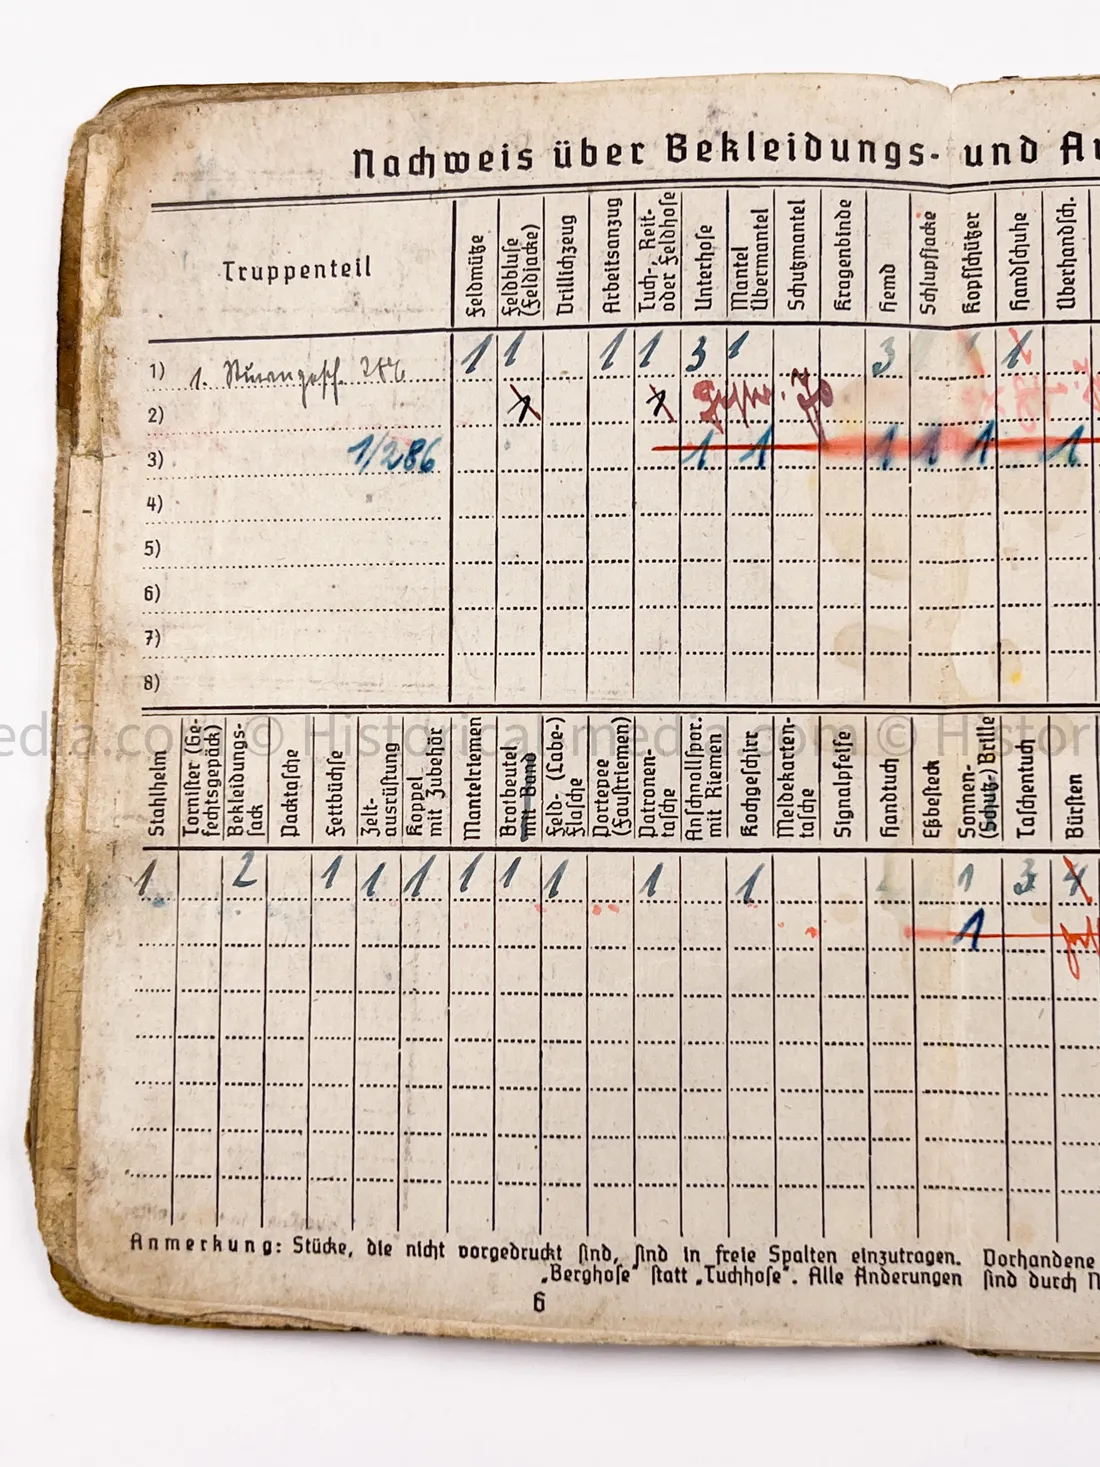 Nachweis über Bekleidungs- und
Truppenteil
Feldmütze
Feldbluse
(Feldjacke)
Drillichzeug
Arbeitsanzug
Tuch-, Reit-
oder Feldhose
Unterhose
Mantel
Übermantel
Schutzmantel
Kragenbinde
Hemd
Schlupfjacke
Kopfschützer
Handschuhe
Überhandsch.
1) 1. 1 1 1 1 3 1 3 1 1
2) 1 1
3) 1/286 1 1 1 1 1 1
4)
5)
6)
7)
8)
Stahlhelm
Tornister (Ge-
fechtsgepäck)
Bekleidungs-
sack
Packtasche
Fettbüchse
Zelt-
ausrüstung
Koppel
mit Zubehör
Mantelriemen
Brotbeutel
mit Band
Feld- (Labe-)
Flasche
Portepee
(Faustriemen)
Patronen-
tasche
Anschnallspor.
mit Riemen
Kochgeschirr
Meldekarten-
tasche
Signalpfeife
Handtuch
Eßbesteck
Sonnen-
(Schutz-) Brille
Taschentuch
Bürsten
1 2 1 1 1 1 1 1 1 1 1 3 4
1
Anmerkung: Stücke, die nicht vorgedruckt sind, sind in freie Spalten einzutragen. Vorhandene
„Berghose" statt „Tuchhose". Alle Änderungen sind durch
6
© Historical-media.com ©